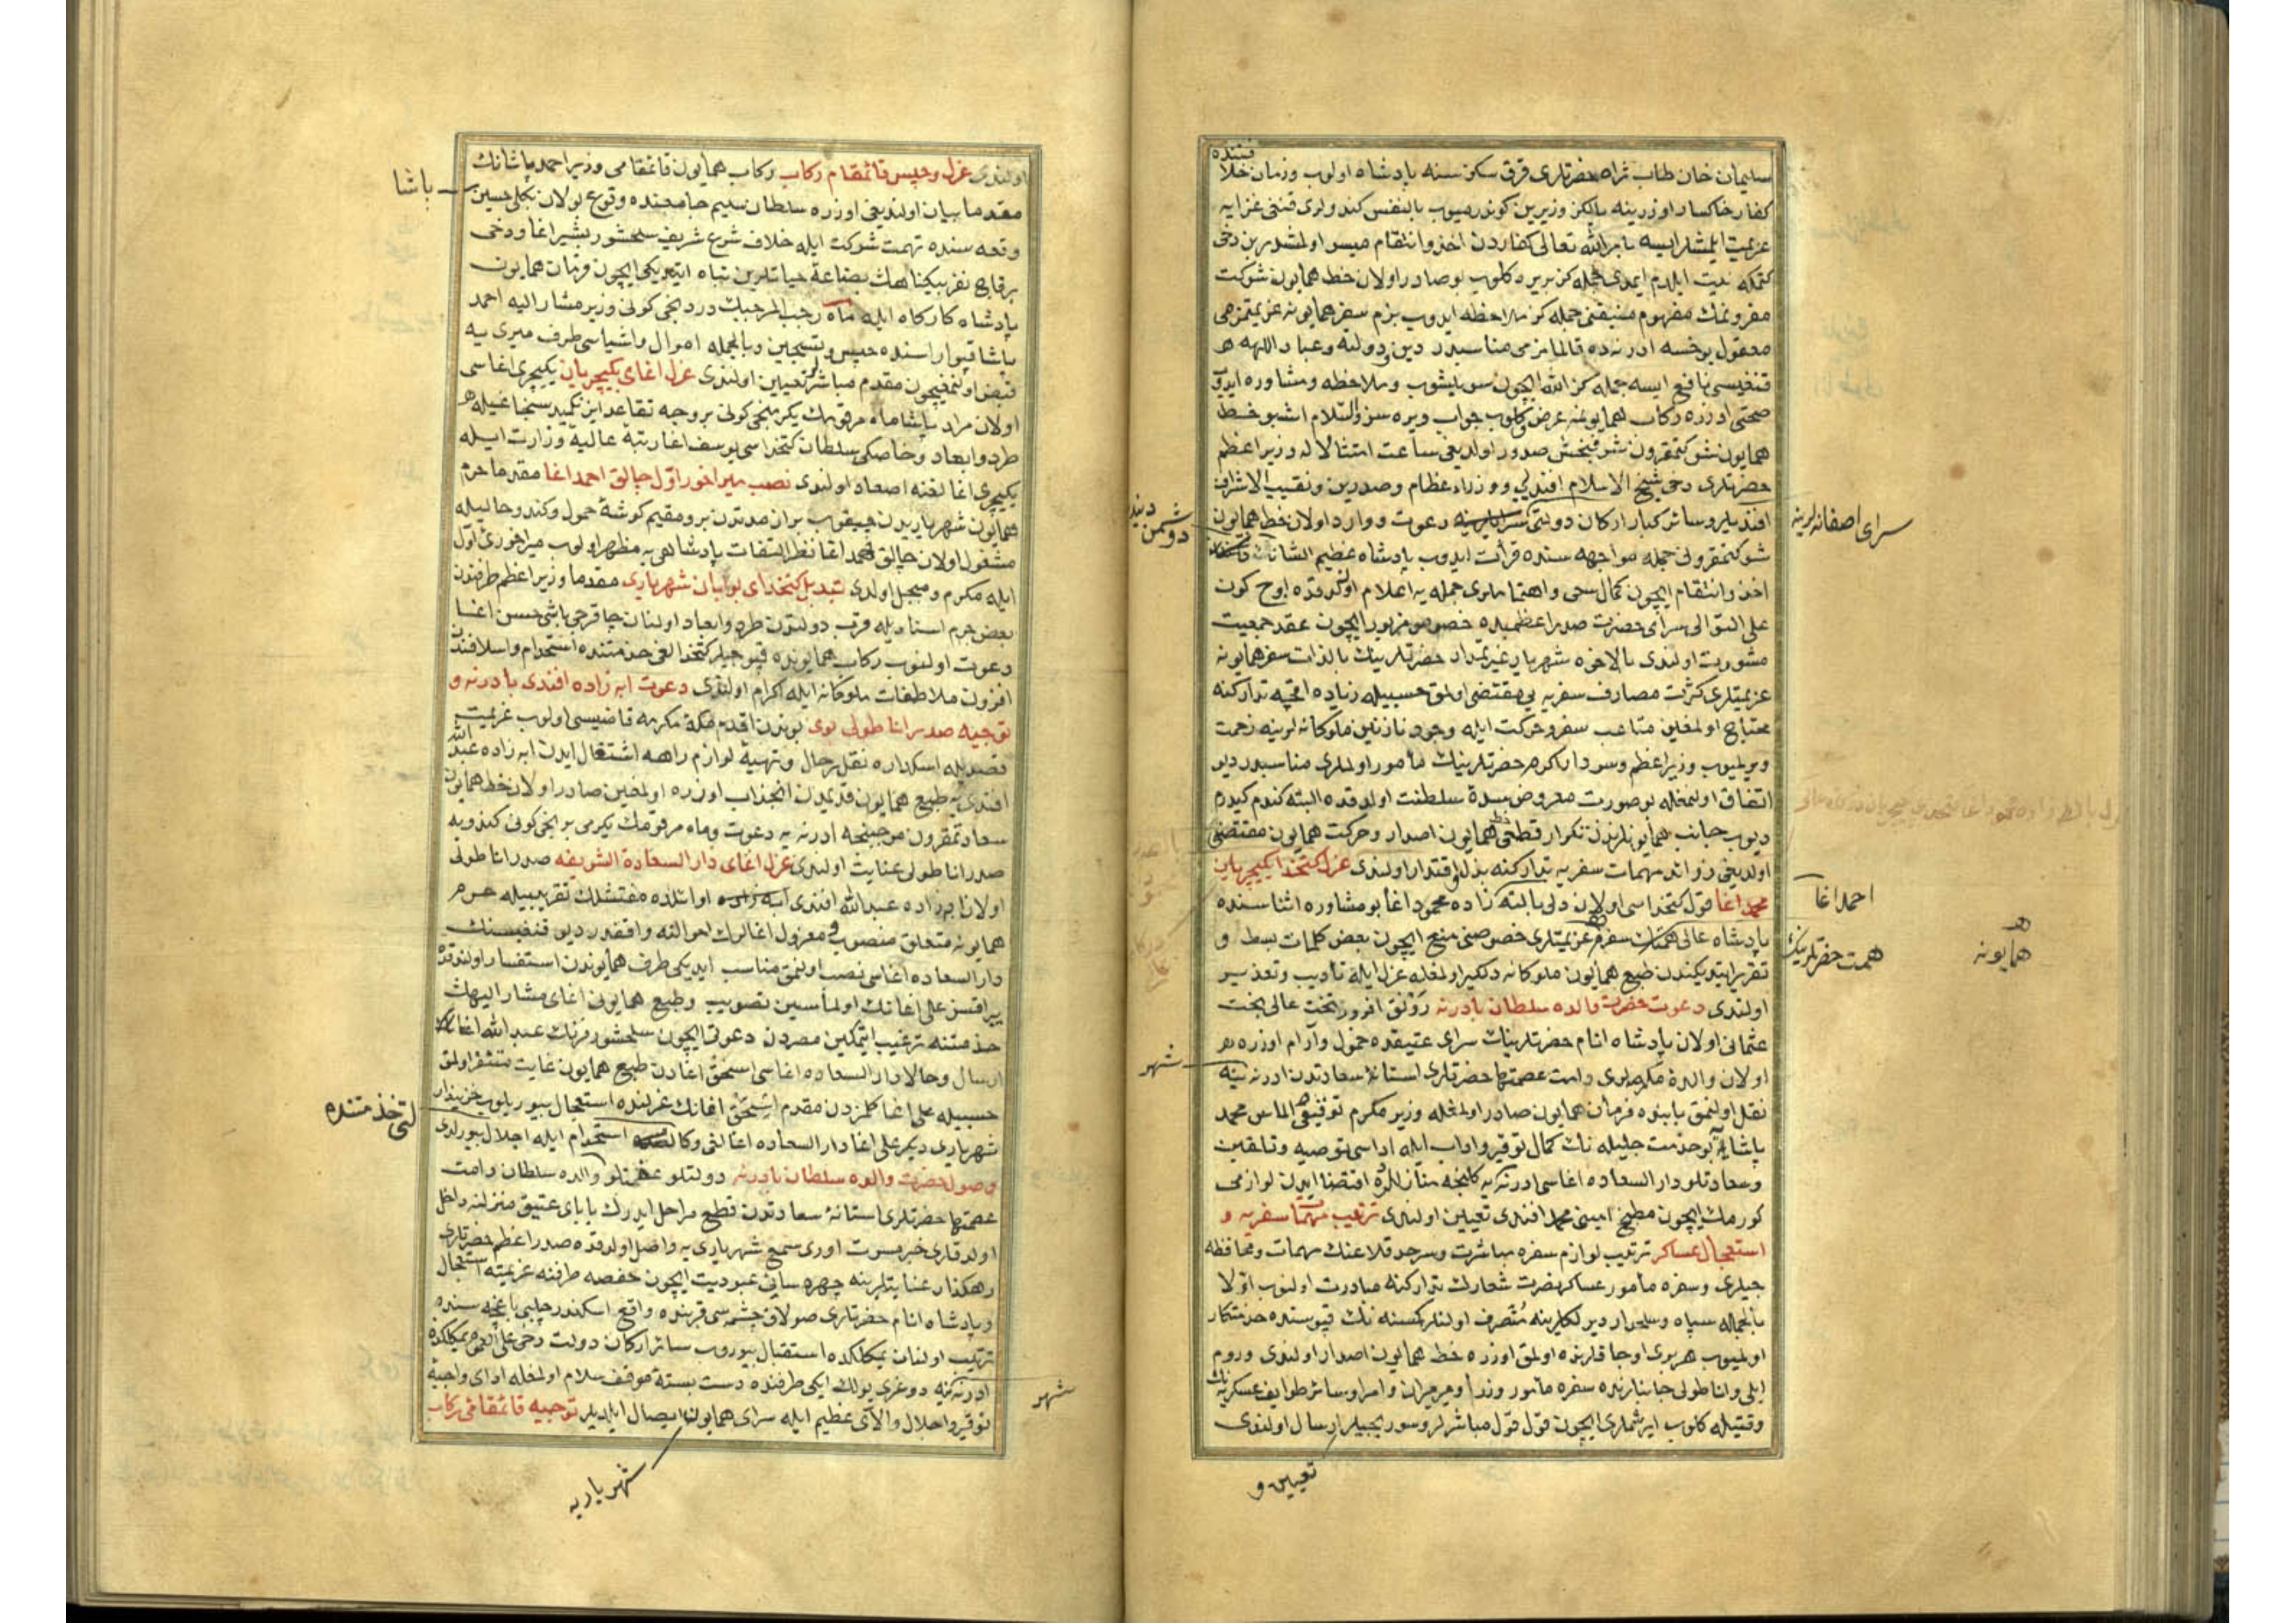 سليمان خان طاب ثراه حضرتلرى قرق سكز سنه پادشاه اولوب وزمان خلا
فتنده
كفار خاكسار اوزرينه يالكز وزيرين كوندرميوب بالنفس كندولرى قنغى غزايه
عزيمت ايلمشلر ايسه بامر الله تعالى كفاردن اخذ وانتقام ميسر اولمشدر بن دخى
كتمكه نيت ايلدم ايمدى جمله كز بريره كلوب بو صادر اولان خط همايون شوكت
مقرونمك مفهوم منيفنى جمله كز ملاحظه ايدوب بزم سفر همايونه عزيمتمز مى
معقول يوخسه ادرنه ده قالمامز مى مناسبدر دين ودولته وعباد اللهه
قنغيسى نافع ايسه جمله كز الله ايچون سويليشوب وملاحظه ومشاوره ايدوب
صحتى اوزره ركاب همايونمه عرض وكلوب جواب ويره سز والسلام اشبو خط
همايون شوكتمقرون شرفبخش صدور اولديغى ساعت امتثالا له وزير اعظم
حضرتلرى دخى شيخ الاسلام افندى ووزراء عظام وصدرين ونقيب الاشراف
افنديلر وسائر كبار اركان دولتى دعوت ووارد اولان خط همايون
سراى اصفانه لرينه
شوكتمقرونى جمله مواجهه سنده قرائت ايدوب پادشاه عظيم الشانك
دوشمن دیندن
اخذ وانتقام ايچون كمال سعى واهتماملرى جمله يه اعلام اولندقده اوج كون
على التوالى سراى حضرت صدر اعظميده خصوص مزبور ايچون عقد جمعيت
مشورت اولندى بالاخره شهريار غيرتمدار حضرتلرينك بالذات سفر همايونه
عزيمتلرى كثرت مصارف سفريه يى مقتضى اولمق حسبيله زياده اقچه تداركنه
محتاج اولمغين متاعب سفر وحركت ايله وجود نازنين ملوكانه لرينه زحمت
ويرلميوب وزير اعظم وسردار اكرم حضرتلرينك مأمور اولملرى مناسبدر ديو
اتفاق اولنمغله بو صورت معروض سدهٔ سلطنت اولدقده البته كندم كيدرم
ديوب جانب همايونلرندن تكرار قطعى خط همايون اصدار وحركت همايون مقتضى
اولديغى زوائد مهمات سفريه تداركنه بذل اقتدار اولندى عزل كتخداى يكيچريان
محمد اغا قول كتخداسى اولان دلى بالته زاده محمود اغا بو مشاوره اثناسنده
احمد اغا
پادشاه عالى همت سفره عزيمتلرى خصوصنى منع ايچون بعض كلمات بسط و
همت حضرتلرينك
همايونه
تقرير ايتديكندن طبع همايون ملوكانه دلكير اولمغله عزل ايله تأديب وتعذير
اولندى دعوت حضرت والده سلطان بادرنه رونق افروز تخت عالى بخت
عثمانى اولان پادشاه انام حضرتلرينك سراى عتيقده خمول وآرام اوزره
اولان والدهٔ مكرمه لرى دامت عصمتها حضرتلرى استانهٔ سعادتدن ادرنه يه
شهر
نقل اولنمق بابنده فرمان همايون صادر اولمغله وزير مكرم توقيعى الماس محمد
پاشايه بو خدمت جليله نك كمال توقير واداب ايله اداسى توصيه وتلقين
وسعادتلو دار السعاده اغاسى ادرنه يه كلنجه منازلده اقتضا ايدن لوازمى
كورمك ايچون مطبخ امينى محمد افندى تعيين اولندى ترتيب مهمات سفريه و
استعجال عساكر ترتيب لوازم سفره مباشرت وسرحد قلاعنك مهمات ومحافظه
جيلرى وسفره مأمور عساكر نصرت شعارك تداركنه مبادرت اولنوب اولا
بالجمله سپاه وسلحدار ديرلكلرينه متصرف اولنلر كمسنه نك قپوسنده خدمتكار
اولميوب هر برى اوجاقلرنده اولمق اوزره خط همايون اصدار اولندى وروم
ايلى واناطولى جانبلرنده سفره مأمور وزرا وميرميران وامرا وسائر طوايف عسكريه نك
وقتيله كلوب ايرشملرى ايچون قول قول مباشرلر وسوريجيلر ارسال اولندى
تعيين و
اولندى عزل وحبس قائمقام ركاب ركاب همايون قائمقامى وزير احمد پاشانك
مقدما بيان اولنديغى اوزره سلطان سليم جامعنده وقوع بولان بكلى حسين
پاشا
وقعه سنده تهمت شركت ايله خلاف شرع شريف سلحشور بشير اغا ودخى
برقاچ نفر بيكناهك بضاعهٔ حياتلرين تباه ايتديكى ايچون فرمان همايون
پادشاه كاركاه ايله ماه رجب المرجبك دردنجى كونى وزير مشار اليه احمد
پاشا قپوارا سنده حبس وتسجين وبالجمله اموال واشياسى طرف ميرى يه
قبض اولنمغيچون مقدم مباشر تعيين اولندى عزل اغاى يكيچريان يكيچرى اغاسى
اولان مراد پاشا ماه مرقومك يكرمنجى كونى بروجه تقاعد سنجاغيله
طرد وابعاد وخاصكى سلطان كتخداسى يوسف اغا رتبهٔ عاليهٔ وزارت ايله
يكيچرى اغالغنه اصعاد اولندى نصب ميراخور اول چالق احمد اغا مقدما حرم
همايون شهرياريدن چيقوب بر ان مدتدن برو مقيم كوشهٔ خمول وكند وحاليله
مشغول اولان چالق احمد اغا نظر التفات پادشاهى يه مظهر اولوب ميراخورئ اول
ايله مكرم ومبجل اولدى تبديل كتخداى بوابان شهريارى مقدما وزير اعظم طرفندن
بعض جرم اسناديله قرب دولتدن طرد وابعاد اولنان چاقرجى باشى حسن اغا
دعوت اولنوب ركاب همايونده قپوجيلر كتخدالغى خدمتنده استخدام واسلافندن
افزون ملاطفات ملوكانه ايله اكرام اولندى دعوت ابه زاده افندى بادرنه و
توجيه صدر اناطولى بوى بوندن اقدم مكهٔ مكرمه قاضيسى اولوب عزيمت
قصديله اسكداره نقل رحال وتهيهٔ لوازم راهه اشتغال ايدن ابه زاده عبد الله
افندى يه طبع همايون قديمدن انجذاب اوزره اولمغين صادر اولان خط همايون
سعادتمقرون موجبنجه ادرنه يه دعوت وماه مرقومك يكرمى برنجى كونى كندويه
صدر اناطولى عنايت اولندى عزل اغاى دار السعادة الشريفه صدر اناطولى
اولان ابه زاده عبد الله افندى اوائلده مفتشلك تقريبيله حرم
همايونه متعلق منصوب ومعزول اغالرك احوالنه واقفدر ديو قنغيسنك
دار السعاده اغاسى نصب اولنمق مناسب ايدوكى طرف همايوندن استفسار اولندقده
يپراقسز على اغانك اولماسين تصويب وطبع همايونى اغاى مشار اليهك
خدمتنه ترغيب ايتمكين مصردن دعوتى ايچون سلحشور فرنك عبد الله اغا
ارسال وحالا دار السعاده اغاسى اسحق اغادن طبع همايون غايت متنفر اولمق
حسبيله على اغا كلمزدن مقدم اسحق اغانك عزلنده استعجال بيوريلوب خزينه دار
شهريارى ديكر على اغا دار السعاده اغالغى وكالتى خدمتنده استخدام ايله اجلال بيورلدى
وصول حضرت والده سلطان بادرنه دولتلو عصمتلو والده سلطان دامت
عصمتها حضرتلرى استانهٔ سعادتدن قطع مراحل ايدرك باباى عتيق منزلنه داخل
اولدقلرى خبر مسرت اورى سمع شهريارى يه واصل اولدقده صدر اعظم حضرتلرى
رهكذار عنايتلرينه چهره ساى عبوديت ايچون حفصه طرفنه عزيمته استعجال
وپادشاه انام حضرتلرى صولاق چشمه سى قربنده واقع اسكندر چلبى باغچه سنده
ترتيب اولنان يمكلكده استقبال بيوروب سائر اركان دولت دخى يمكلكده
ادرنه يه دوغرى يولك ايكى طرفنده دست بسته موقف سلام اولمغله اداى واجبهٔ
شهر
توقير واجلال والاى عظيم ايله سراى همايون ايصال ايلديلر توجيه قائمقامى ركاب
شهرياريه